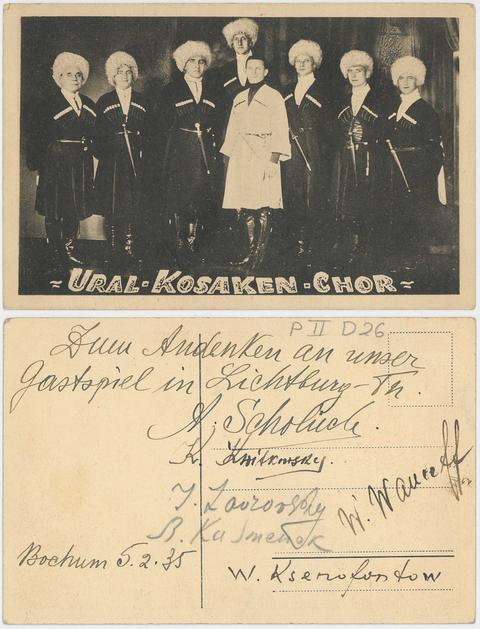 ~ URAL-KOSAKEN-CHOR ~
P II D26
Zum Andenken an unser
Gastspiel in Lichtburg-Th.
A. Scholuch.
K. Kwitkowsky.
W. Waueeff
B. Kusmenok
Bochum 5.2.35
W. Ksenofontow